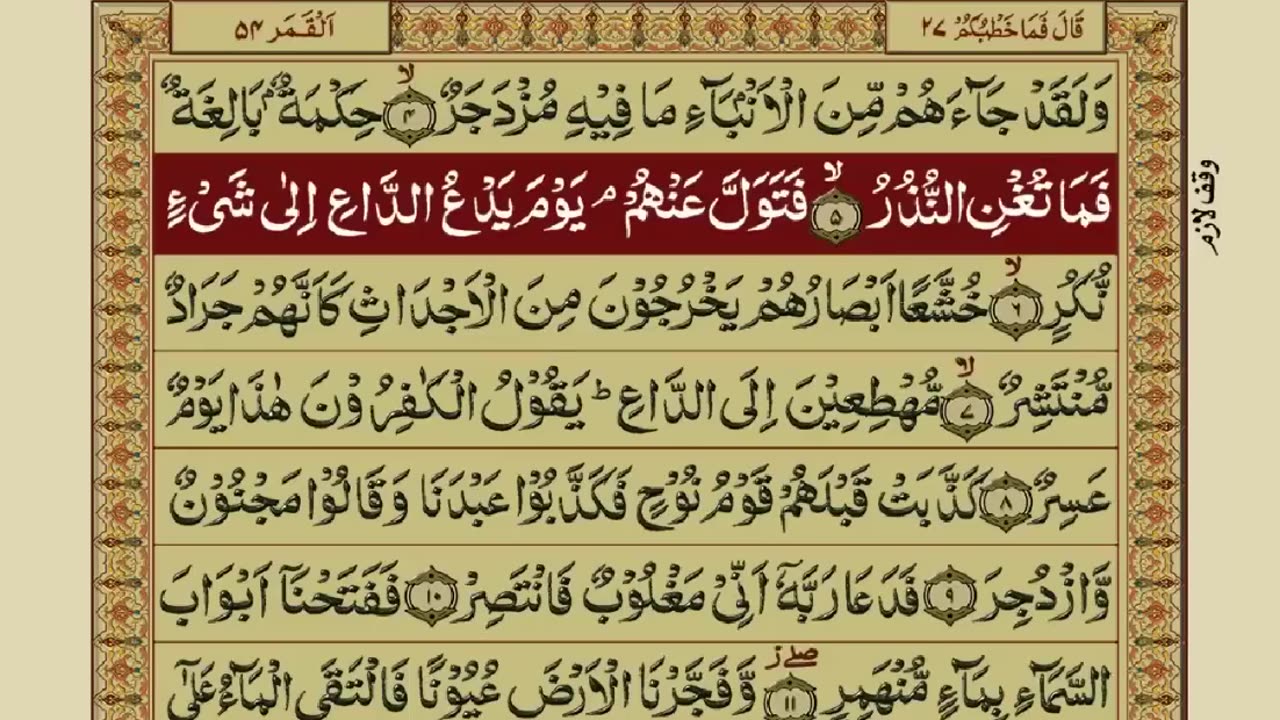 قَالَ فَمَا خَطْبُكُمْ ٢٧
اَلْقَمَر ٥۴
وَلَقَدْ جَآءَهُمْ مِّنَ الْاَنْۢبَآءِ مَا فِيْهِ مُزْدَجَرٌ ۙ﴿۴﴾ حِكْمَةٌۢ بَالِغَةٌ
فَمَا تُغْنِ النُّذُرُ ۙ﴿۵﴾ فَتَوَلَّ عَنْهُمْ ۘ يَوْمَ يَدْعُ الدَّاعِ اِلٰى شَیْءٍ
وقف لازم
نُّكُرٍ ۙ﴿۶﴾ خُشَّعًا اَبْصَارُهُمْ يَخْرُجُوْنَ مِنَ الْاَجْدَاثِ كَاَنَّهُمْ جَرَادٌ
مُّنْتَشِرٌ ۙ﴿۷﴾ مُّهْطِعِيْنَ اِلَى الدَّاعِ ؕ يَقُوْلُ الْكٰفِرُوْنَ هٰذَا يَوْمٌ
عَسِرٌ ﴿۸﴾ كَذَّبَتْ قَبْلَهُمْ قَوْمُ نُوْحٍ فَكَذَّبُوْا عَبْدَنَا وَقَالُوْا مَجْنُوْنٌ
وَّازْدُجِرَ ﴿۹﴾ فَدَعَا رَبَّهٗۤ اَنِّیْ مَغْلُوْبٌ فَانْتَصِرْ ﴿۱۰﴾ فَفَتَحْنَاۤ اَبْوَابَ
السَّمَآءِ بِمَآءٍ مُّنْهَمِرٍ ۖؗ﴿۱۱﴾ وَّفَجَّرْنَا الْاَرْضَ عُيُوْنًا فَالْتَقَى الْمَآءُ عَلٰۤى